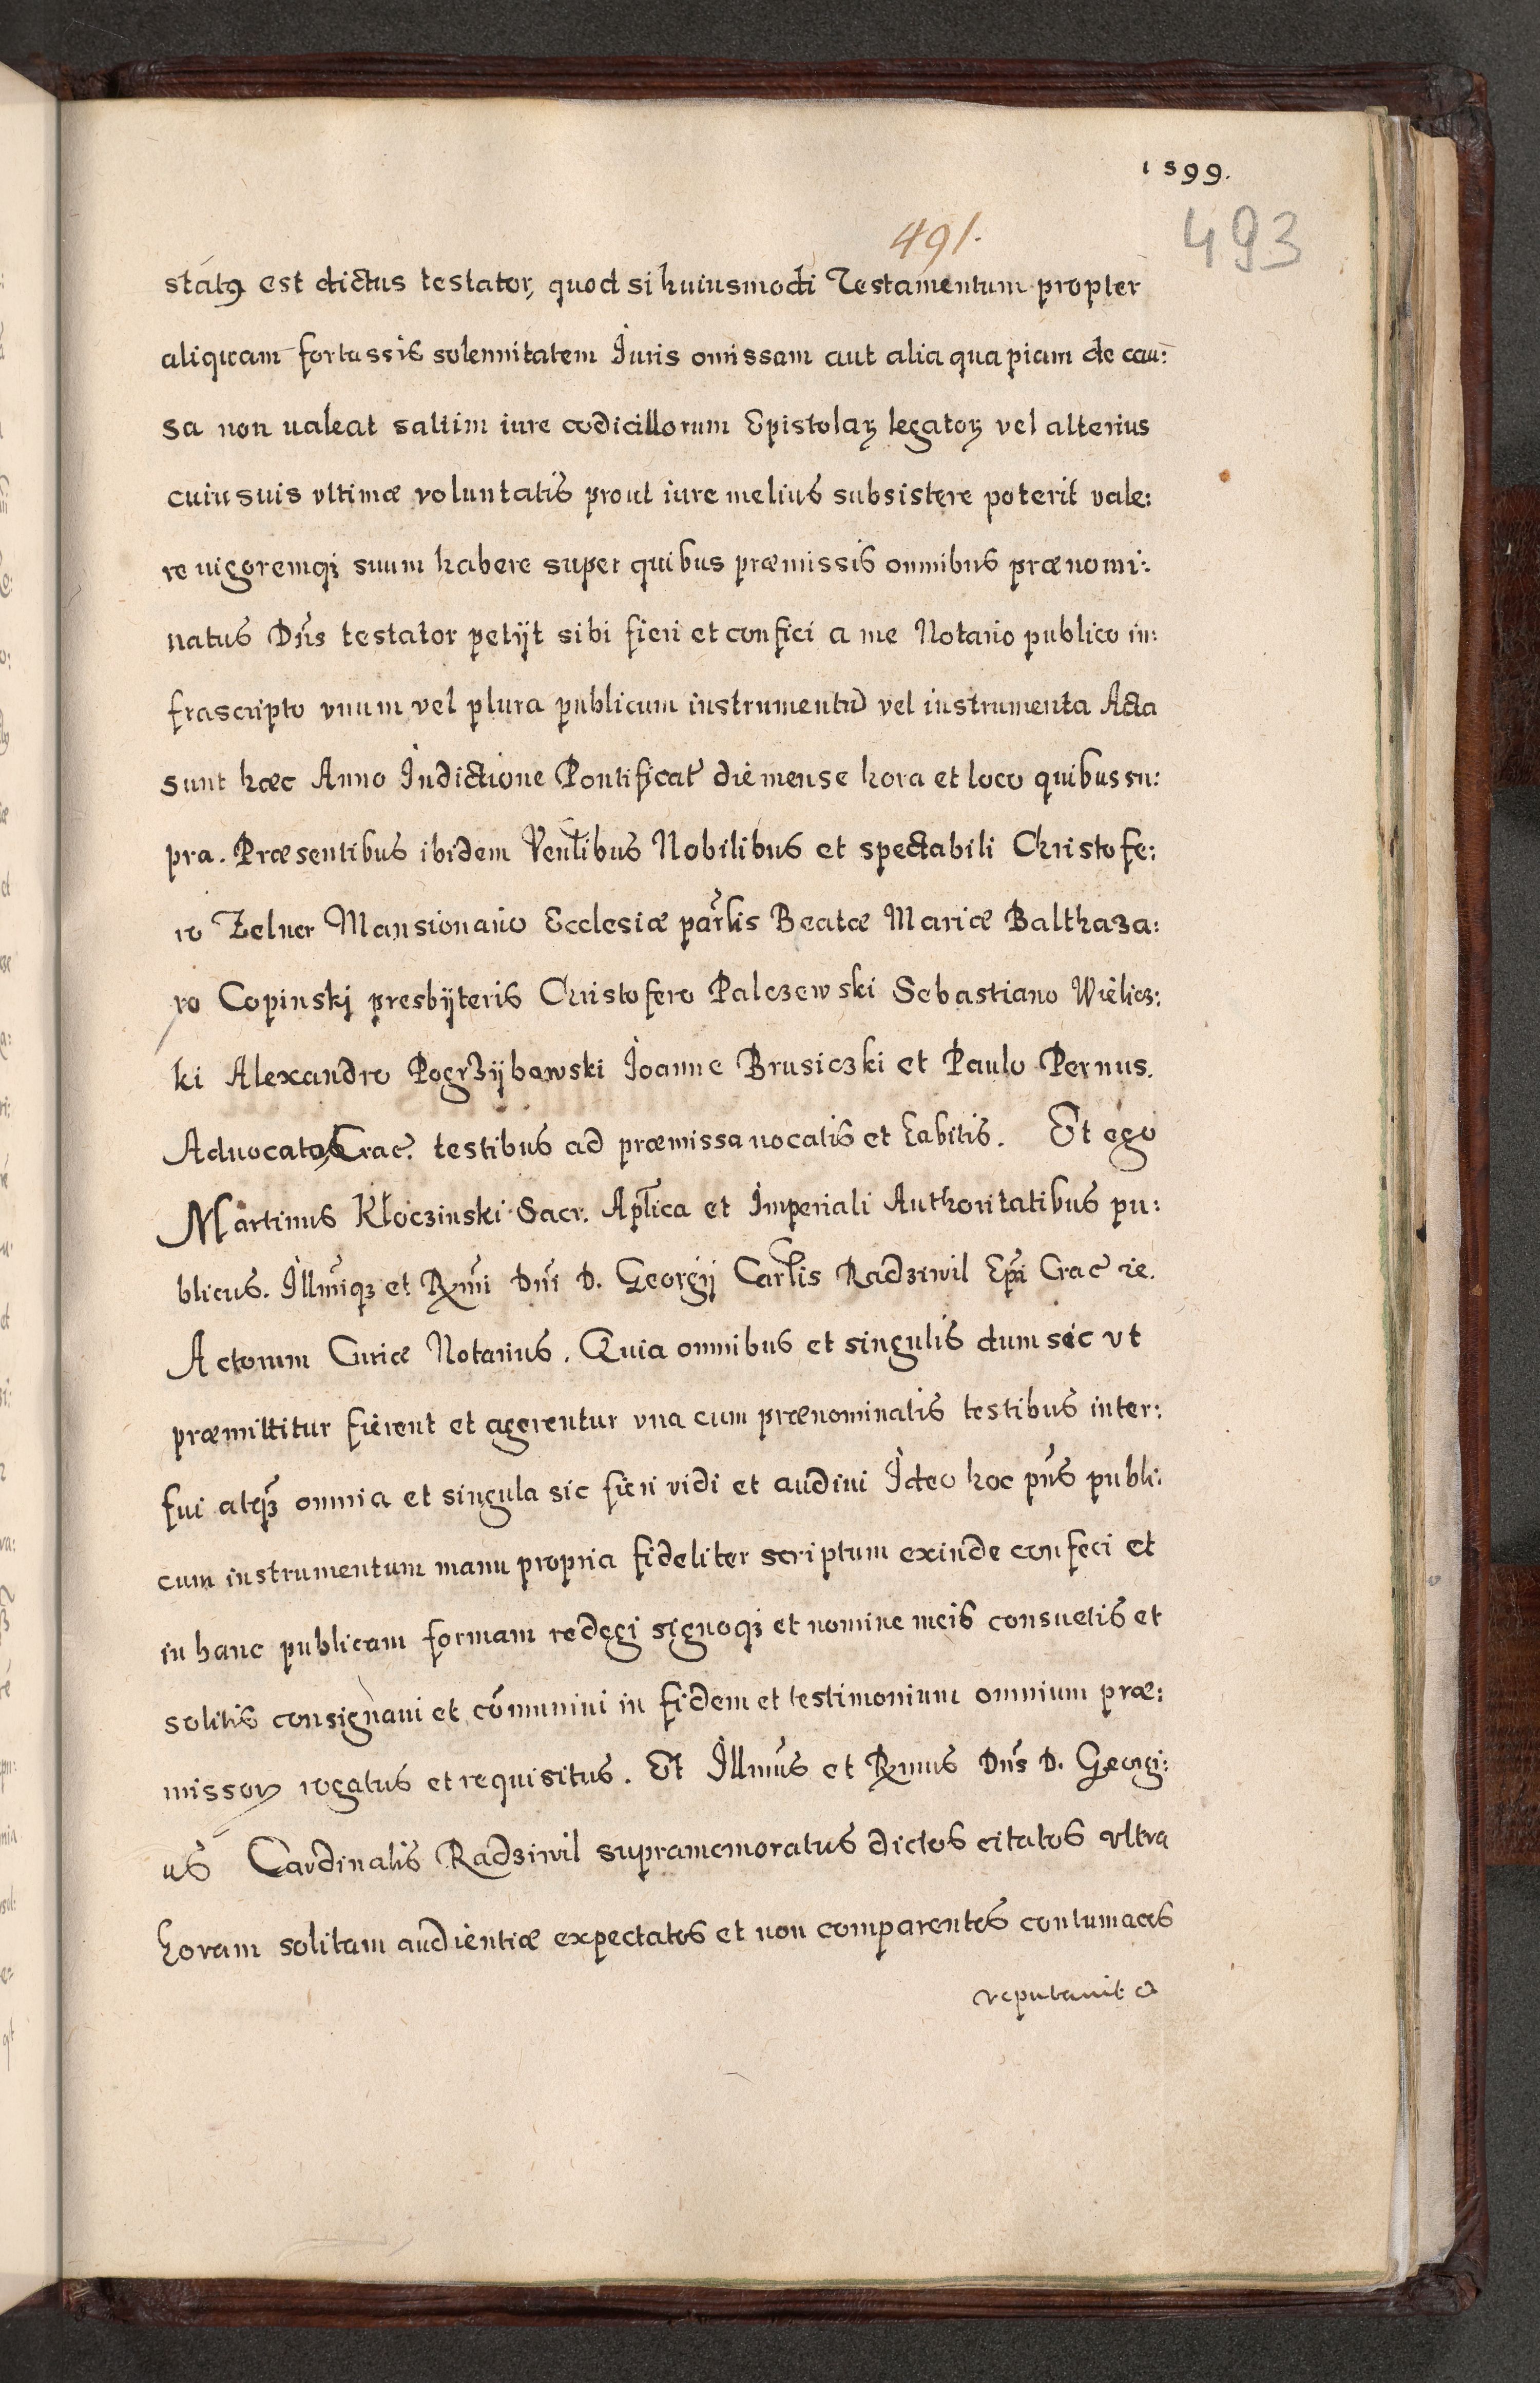 1599.
491.
493
statꝰ est dictus testator, quod si huiusmodi Testamentum propter
aliquam fortassis solennitatem Iuris omissam aut alia quapiam de cau:
sa non ualeat saltim iure codicillorum Epistolaꝝ legatoꝝ vel alterius
cuiusuis vltimæ voluntatis prout iure melius subsistere poterit vale:
re uigoremqꝫ suum habere super quibus præmissis omnibus prænomi:
natus Dn̄s testator petijt sibi fieri et confici a me Notario publico in:
frascripto vnum vel plura publicum instrumentū vel instrumenta Acta
sunt hæc Anno Indictione Pontificat̄ die mense hora et loco quibus su:
pra. Præsentibus ibidem Ven̄tibus Nobilibus et spectabili Christofe:
ro Zelner Mansionario Ecclesiæ par̄lis Beatæ Mariæ Balthaza:
ro Copinskj presbÿteris Christofero Palczewski Sebastiano Wielicz:
ki Alexandro Pogrzÿbowski Joanne Brusiczki et Paulo Pernus.
Aduocatos Crac̄. testibus ad præmissa uocatis et habitis. Et ego
Martinus Kłoczinski Sacr. Apl̄ica et Imperiali Authoritatibus pu:
blicus. Illm̄iqꝫ et Rm̄i Dn̄i D. Georgij Car̄lis Radziwil Ep̄i Crac̄ ꝛc.
Actorum Curiæ Notarius. Quia omnibus et singulis dum sic vt
præmittitur fierent et agerentur vna cum prænominatis testibus inter:
fui atqꝫ omnia et singula sic fieri vidi et audiui Ideo hoc pn̄s publi:
cum instrumentum manu propria fideliter scriptum exinde confeci et
in hanc publicam formam redegi signoqꝫ et nomine meis consuetis et
solitis consignaui et cōmuniui in fidem et testimonium omnium præ:
missoꝝ rogatus et requisitus. Et Illmūs et Rmus Dn̄s D. Georgi:
us Cardinalis Radziwil supramemoratus dictos citatos vltra
horam solitam audientiæ expectatos et non comparentes contumaces
reputauit &